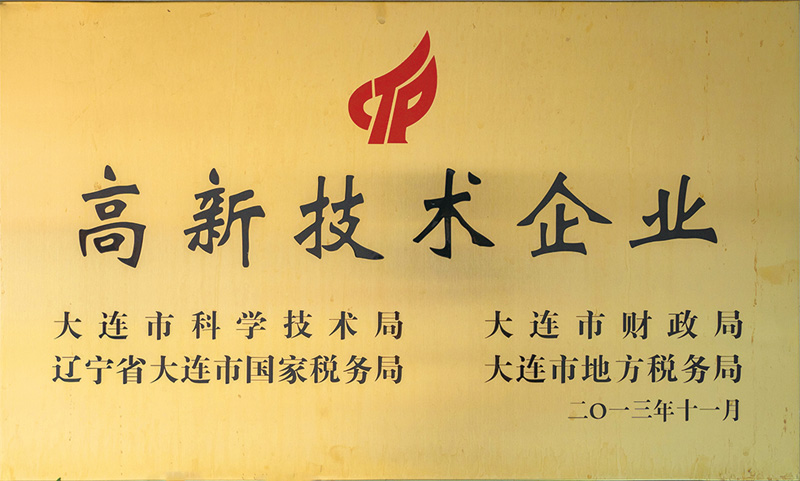 CTP
高新技术企业
大连市科学技术局 大连市财政局
辽宁省大连市国家税务局 大连市地方税务局
二〇一三年十一月